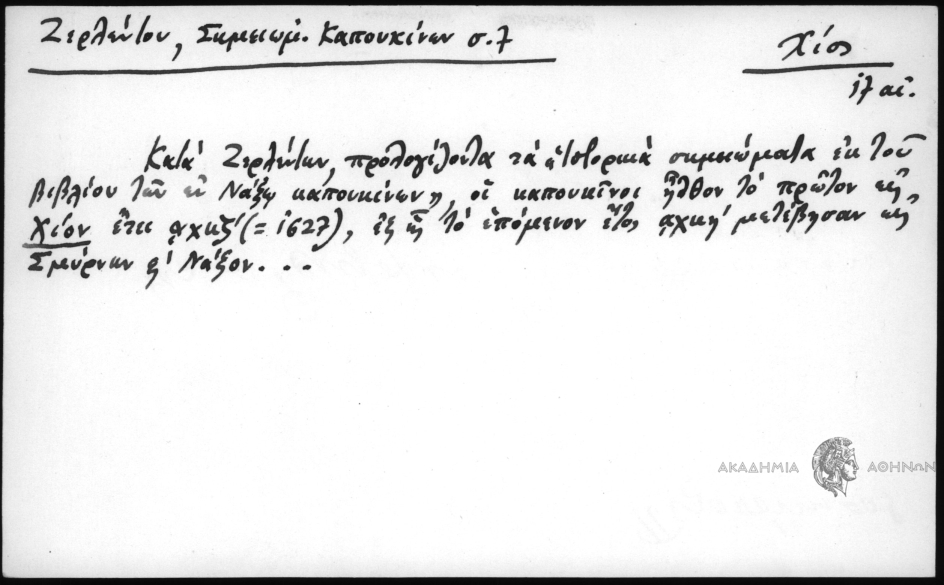 Ζερλέντου, Σημειωμ. Καπουκίνων σ. 7
Χίος
17 αἰ.
Κατά Ζερλέντην, προλογίζοντα τά «ἱστορικά σημειώματα ἐκ τοῦ
βιβλίου τῶν ἐν Νάξῳ καπουκίνων», οἱ καπουκῖνοι ἦλθον τό πρῶτον εἰς
Χίον ἔτει αχκζ' (= 1627), ἐξ ἧς τό ἑπόμενον ἔτος αχκη' μετέβησαν εἰς
Σμύρνην κ' Νάξον. . .
ΑΚΑΔΗΜΙΑ ΑΘΗΝΩΝ